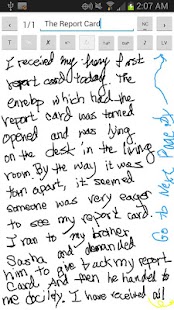 2:07 AM
1/1 The Report Card NC
T LV
I received my very first
report card today. The
envelop which had the
report card was torned
opened and was lying
on the desk in the living
room. By the way it was
torn apart, it seemed
someone was very eager
to see my report card.
I ran to my brother,
Sasha and demanded
him, to give back my report
Card. And then he handed to
me docilely. I have received all
Go to Next Page By